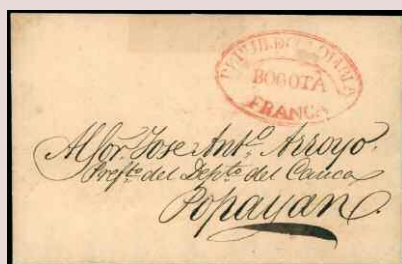 REPUB. DE COLOMBIA
BOGOTA
FRANCA
Al Sor. Jose Anto. Arroyo.
Prefto. del Depto. del Cauca
Popayan.